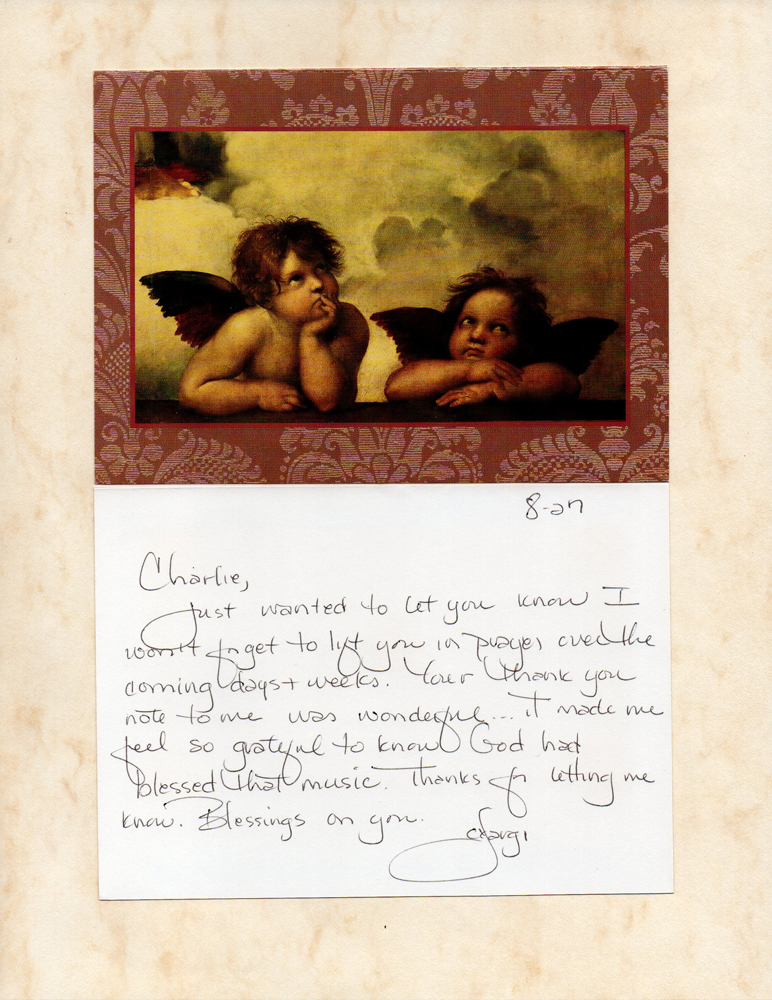 8-27
Charlie,
Just wanted to let you know I
won't forget to lift you in prayer over the
coming days + weeks. Your thank you
note to me was wonderful... it made me
feel so grateful to know God had
blessed that music. Thanks for letting me
know. Blessings on you.